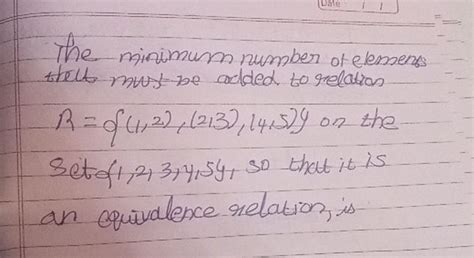 Date / /
The minimum number of elements
that must be added to relation
R = {(1,2), (2,3), (4,5)} on the
set {1,2,3,4,5}, so that it is
an equivalence relation, is